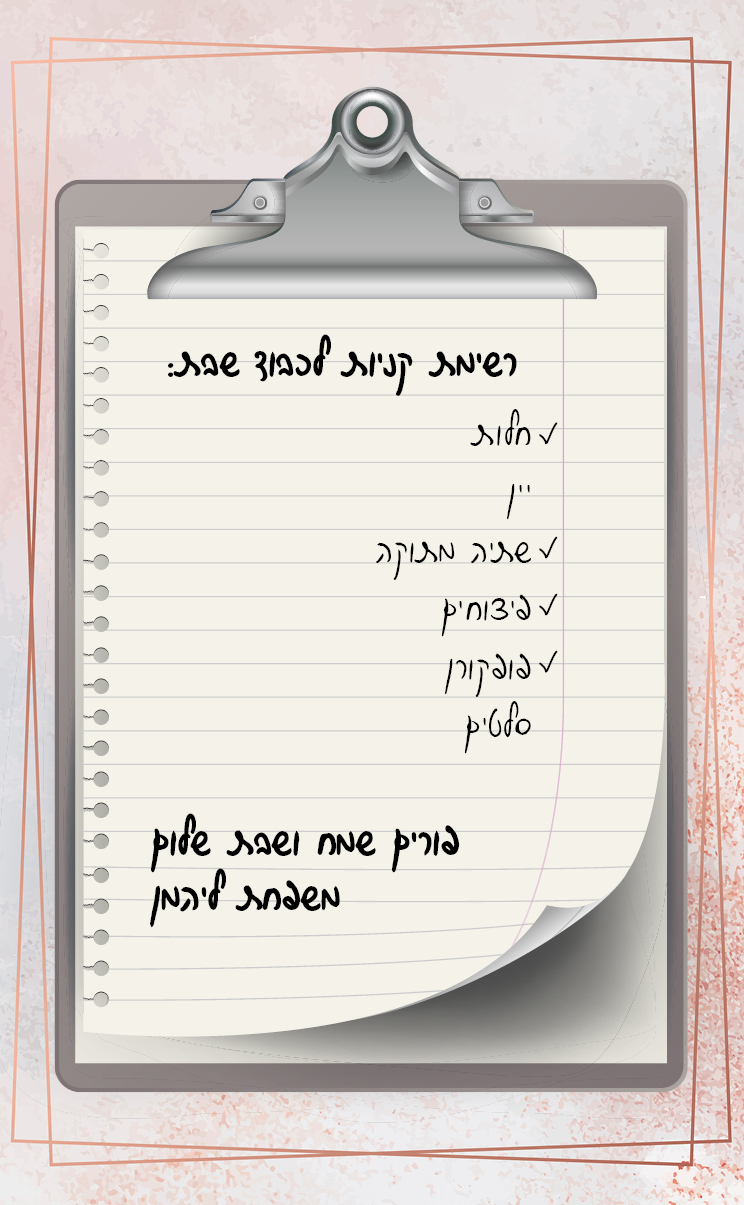 רשימת קניות לכבוד שבת:
✓ חלות
יין
✓ שתיה מתוקה
✓ פיצוחים
✓ פופקורן
סלטים
פורים שמח ושבת שלום
משפחת ליהמן